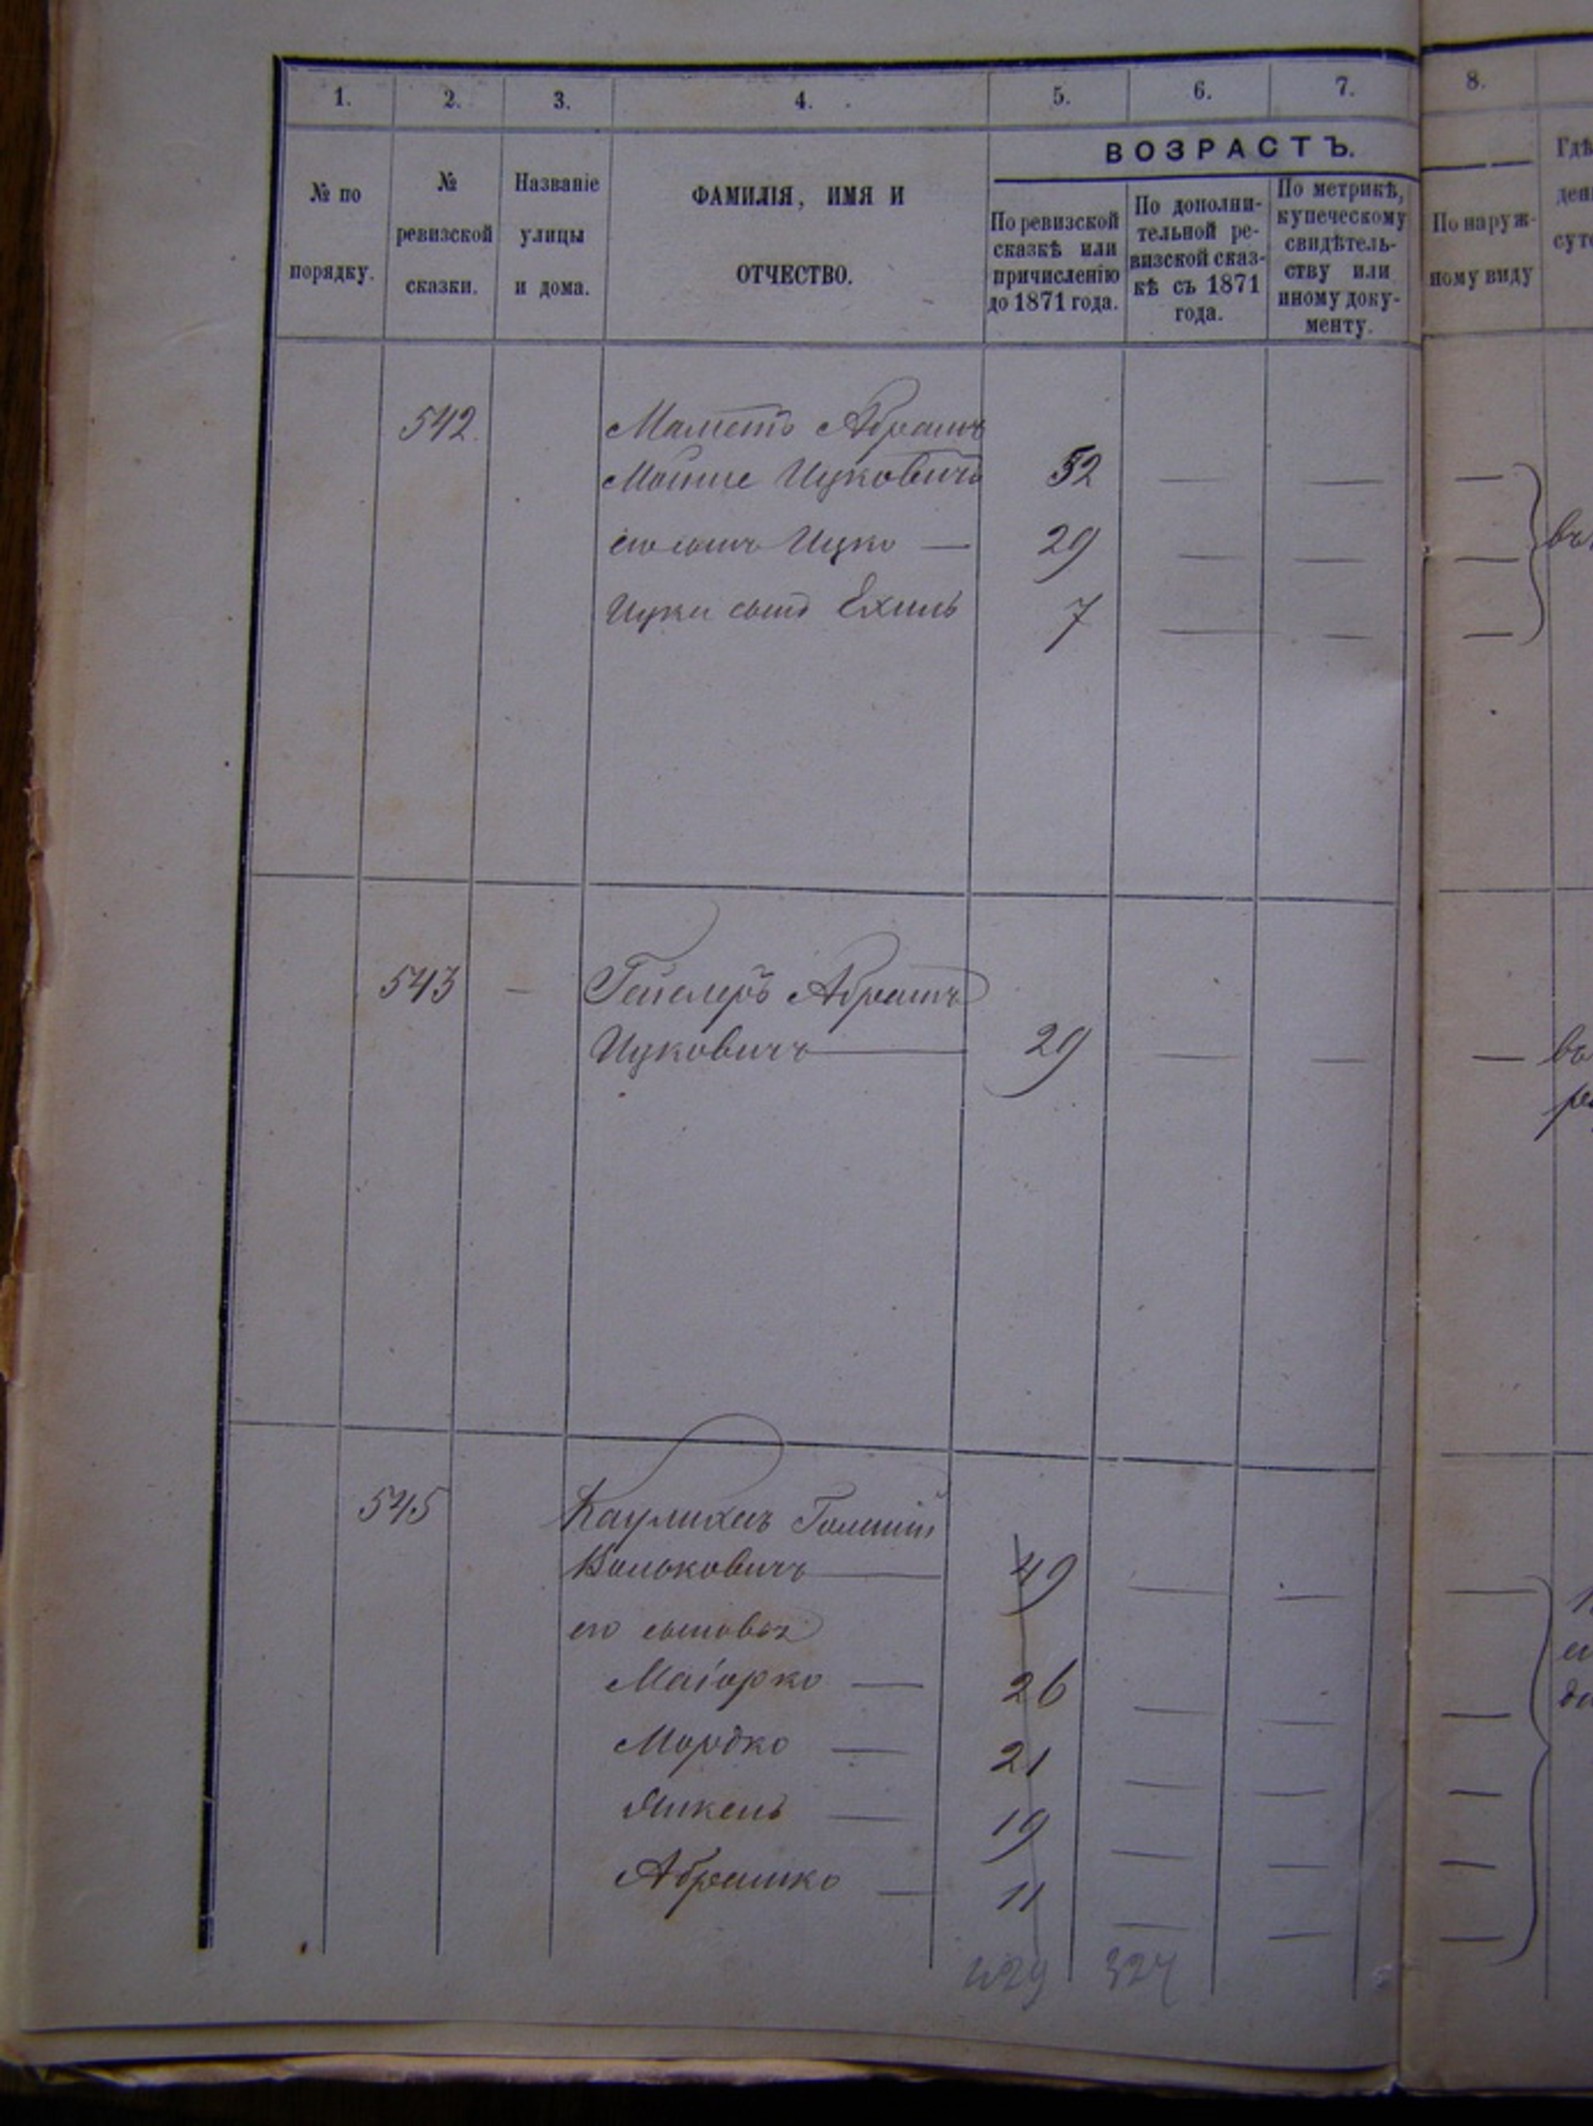 1. 2. 3. 4. 5. 6. 7. 8.
ВОЗРАСТЪ.
№ по порядку.
№ ревизской сказки.
Названіе улицы и дома.
ФАМИЛІЯ, ИМЯ И ОТЧЕСТВО.
По ревизской сказкѣ или причисленію до 1871 года.
По дополнительной ревизской сказкѣ съ 1871 года.
По метрикѣ, купеческому свидѣтельству или иному документу.
По наружному виду
542. Абрамъ
Ицковичъ 52 — — —
его сынъ Ицко — 29 — — —
Ицки сынъ Ехиль 7 — — —
543 — Абрамъ
Ицковичъ — 29 — — —
545
Вольковичъ — 49 — — —
его сыновья
Маіорко — 26 — — —
Мордко — 21 — — —
Янкель — 19 — — —
Абрамко — 11 — — —